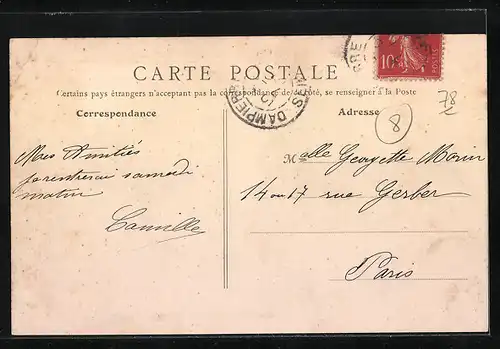 CARTE POSTALE
Certains pays étrangers n'acceptant pas la correspondance de ce côté, se renseigner à la Poste
Correspondance
Adresse
78
8
10
POSTES
DAMPIERRE
Mes Amitiés
je rentrerai samedi
matin
Camille
Melle Georgette Morin
14 ou 17 rue Gerber
Paris